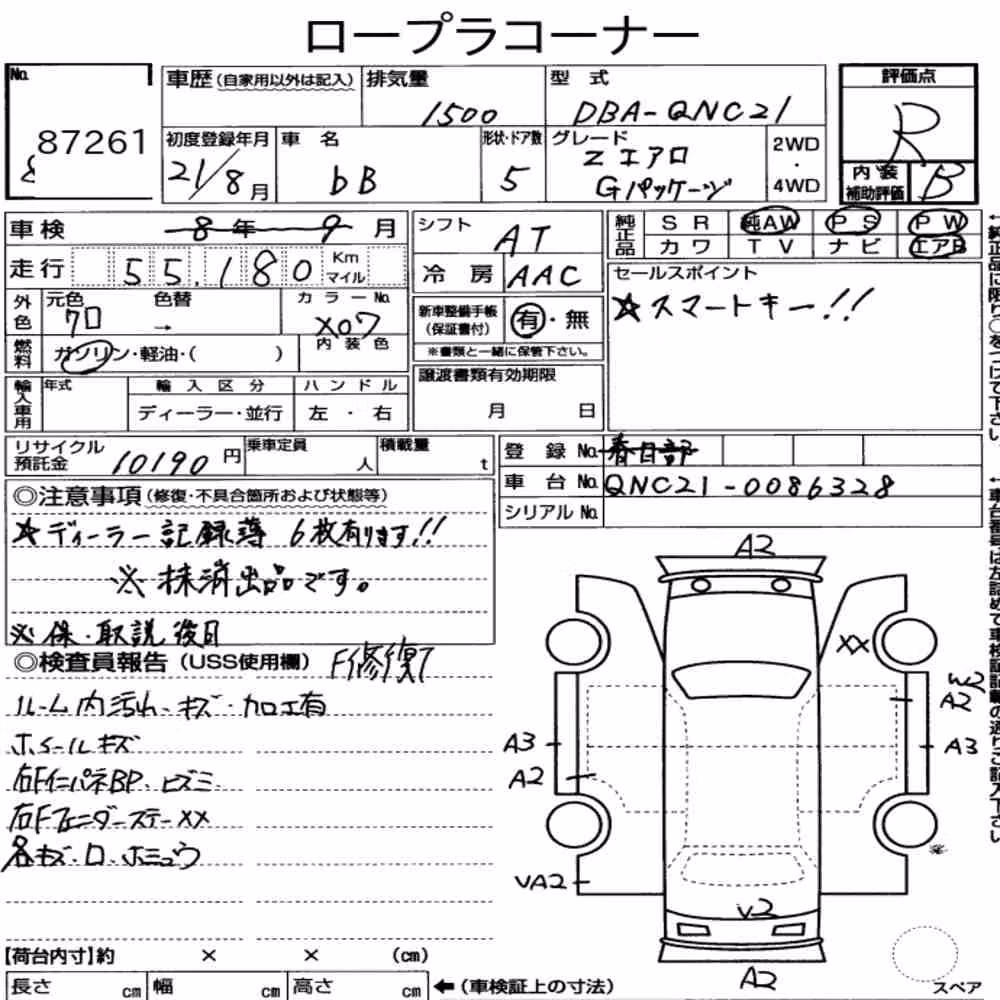 ロープラコーナー
No.
87261
車歴 (自家用以外は記入)
排気量
1500
型 式
DBA-QNC21
評価点
R
初度登録年月
21/8月
車 名
bB
形状・ドア数
5
グレード
Z エアロ
Gパッケージ
2WD
・
4WD
内 装
補助評価
B
車検 8 年 9 月
走行 55,180 Km
マイル
シフト
AT
冷 房 AAC
純正品
S R 純AW P S P W
カワ T V ナビ エアB
セールスポイント
☆スマートキー!!
外色
元色
クロ
色替
→
カラーNo.
X07
燃料
ガソリン・軽油・( )
内 装 色
新車整備手帳
(保証書付)
有・無
※書類と一緒に保管下さい。
輸入車用
年式
輸 入 区 分
ディーラー・並行
ハ ン ド ル
左 ・ 右
譲渡書類有効期限
月 日
リサイクル
預託金
10190 円
乗車定員
人
積載量
t
登 録 No. 春日部
車 台 No. QNC21-0086328
シリアル No.
◎注意事項 (修復・不具合箇所および状態等)
☆ディーラー記録簿 6枚有ります!!
※抹消出品です。
※保・取説後日
◎検査員報告 (USS使用欄) F修復了
ルーム内汚れ・キズ・加工有
ホイールキズ
右FインパネBP・ヒズミ
右FフェンダーステーXX
各キズ・ロ・ホミュウ
A2
XX
W2
A2
A3
A3
A2
VA2
V2
A2
スペア
【荷台内寸】約 × × (cm)
長さ cm 幅 cm 高さ cm
←(車検証上の寸法)
←純正品に限り○をつけて下さい。
←車台番号は左詰めで車検証記載の通りご記入下さい